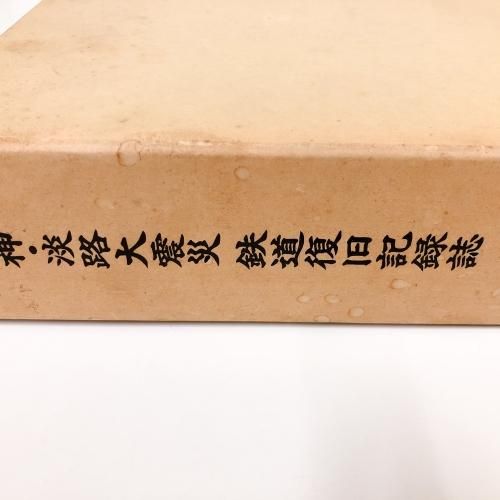 神・淡路大震災 鉄道復旧記録誌